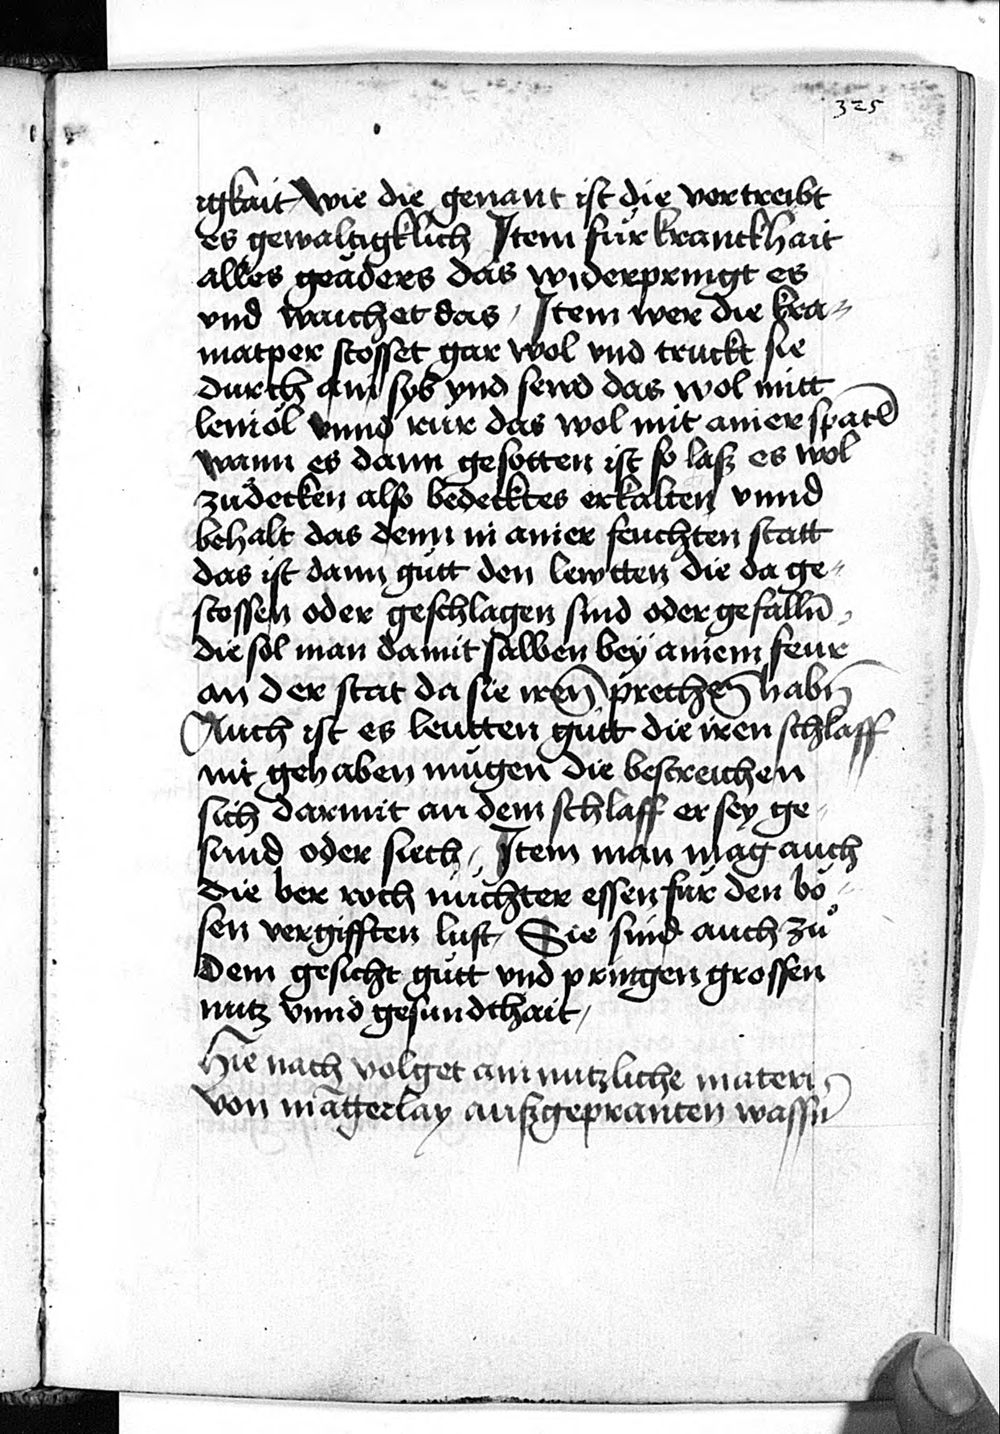 325
igkait wie die genant ist die vertreibt
es gewaltigklich Item für kranckhait
alles geäders das widerpringt es
vnd waichet das / Item wer die kra=
matper stosset gar wol vnd truckt sie
durch ain syb vnd sewd das wol mitt
leinöl vnnd rür das wol mit ainer spatē
wann es dann gesotten ist so lasz es wol
zůdecken also bedecktes erkalten vnnd
behalt das denn in ainer feuchten statt
das ist dann gůtt den lewtten die da ge=
stossen oder geschlagen sind oder gefallñ /
die sol man damit salben bey ainem feur
an der stat da sie iren prechen habñ
Auch ist es leutten gůtt die iren schlaff
nit gehaben mügen die bestreichen
sich darmit an dem schlaff er sey ge=
sund oder siech / Item man mag auch
die ber roch nüchter essen für den bö=
sen vergifften luft / Sie sind auch zů
dem gesicht gůtt vnd pringen grossen
nutz vnnd gesundthait /
Hie nach volget ain nutzliche materi
von mãgerlay auszgepranten wassñ